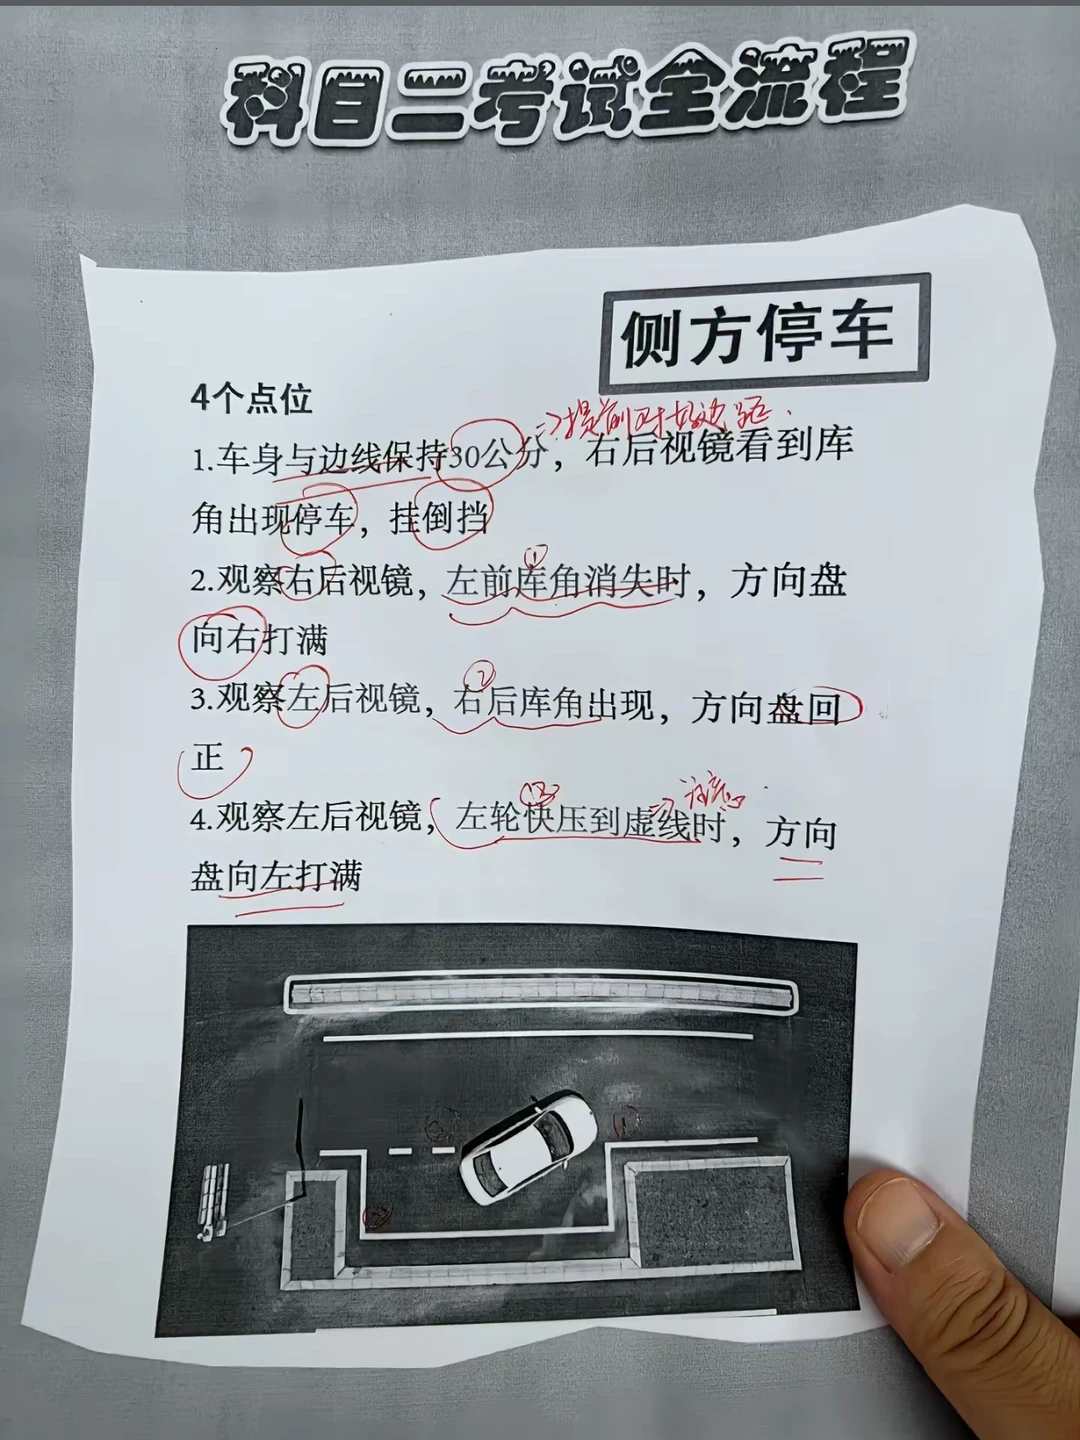 科目二考试全流程
侧方停车
4个点位
⇒提前对好边距.
1.车身与边线保持30公分，右后视镜看到库
角出现停车，挂倒挡
①
2.观察右后视镜，左前库角消失时，方向盘
向右打满
②
3.观察左后视镜，右后库角出现，方向盘回
正
4.观察左后视镜，左轮快压到虚线时，方向
盘向左打满
①
②